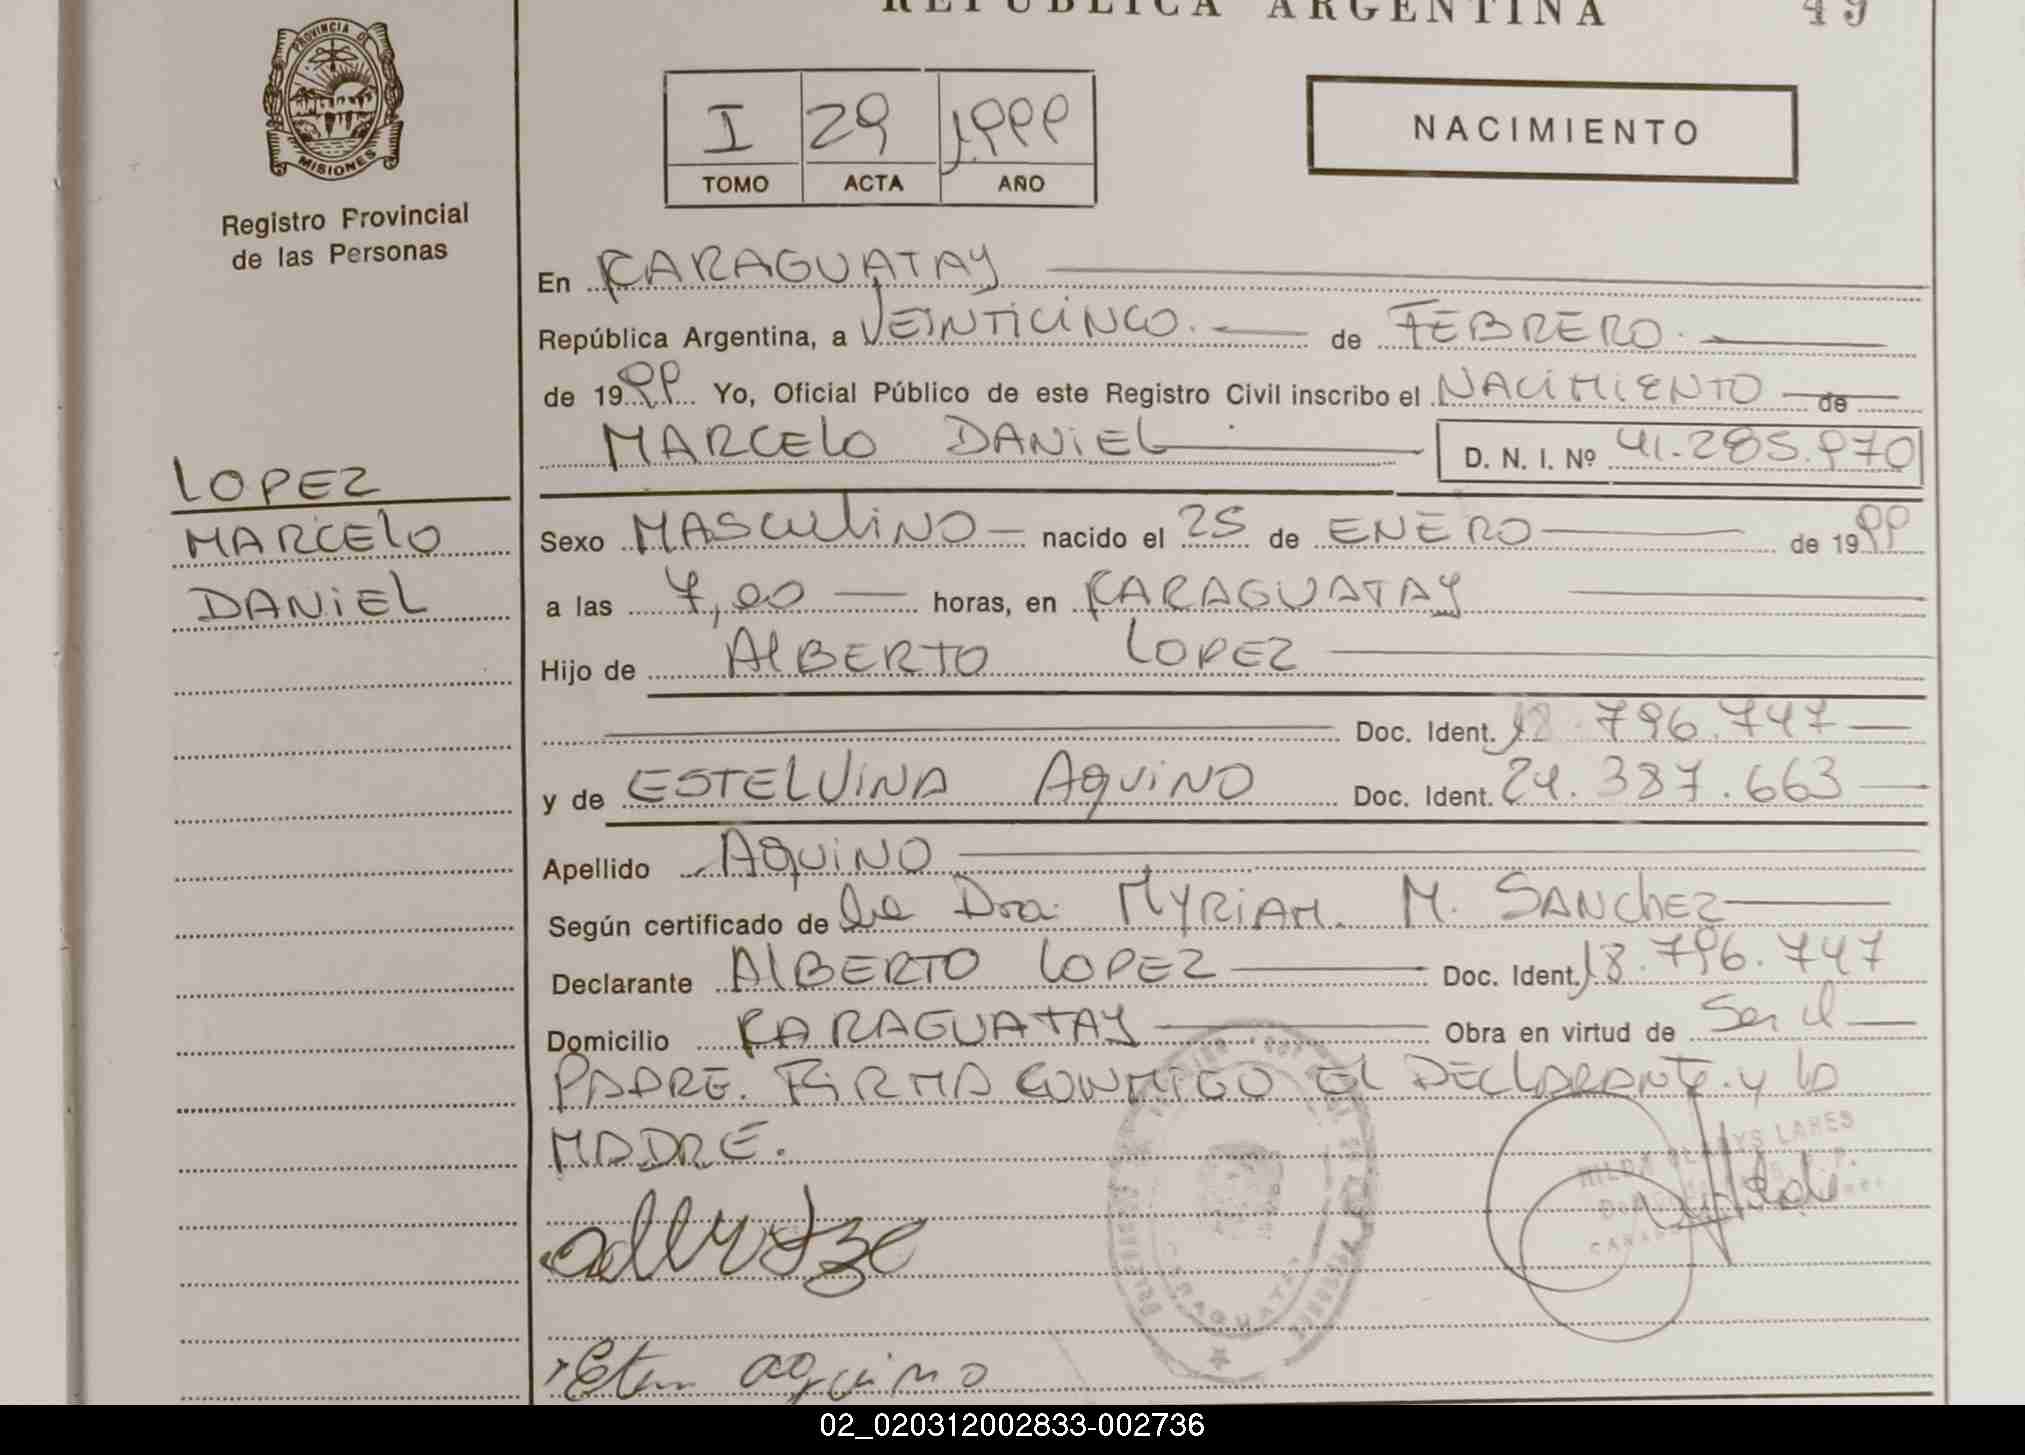 REPUBLICA ARGENTINA 49
PROVINCIA DE
MISIONES
Registro Provincial
de las Personas
I 29 1.999
TOMO ACTA AÑO
NACIMIENTO
En CARAGUATAY
República Argentina, a VEINTICINCO. de FEBRERO.
de 1999 Yo, Oficial Público de este Registro Civil inscribo el NACIMIENTO de
MARCELO DANIEL D. N. I. Nº 41.285.970
LOPEZ
MARCELO
DANIEL
Sexo MASCULINO nacido el 25 de ENERO de 1999
a las 7,00 horas, en CARAGUATAY
Hijo de ALBERTO LOPEZ
Doc. Ident. 18.796.747
y de ESTELVINA AQUINO Doc. Ident. 24.387.663
Apellido AQUINO
Según certificado de la Dra. MYRIAM. M. SANCHEZ
Declarante ALBERTO LOPEZ Doc. Ident. 18.796.747
Domicilio CARAGUATAY Obra en virtud de Ser el
PADRE. FIRMA CONMIGO EL DECLARANTE y LA
MADRE.
LARES
aquino
02_020312002833-002736